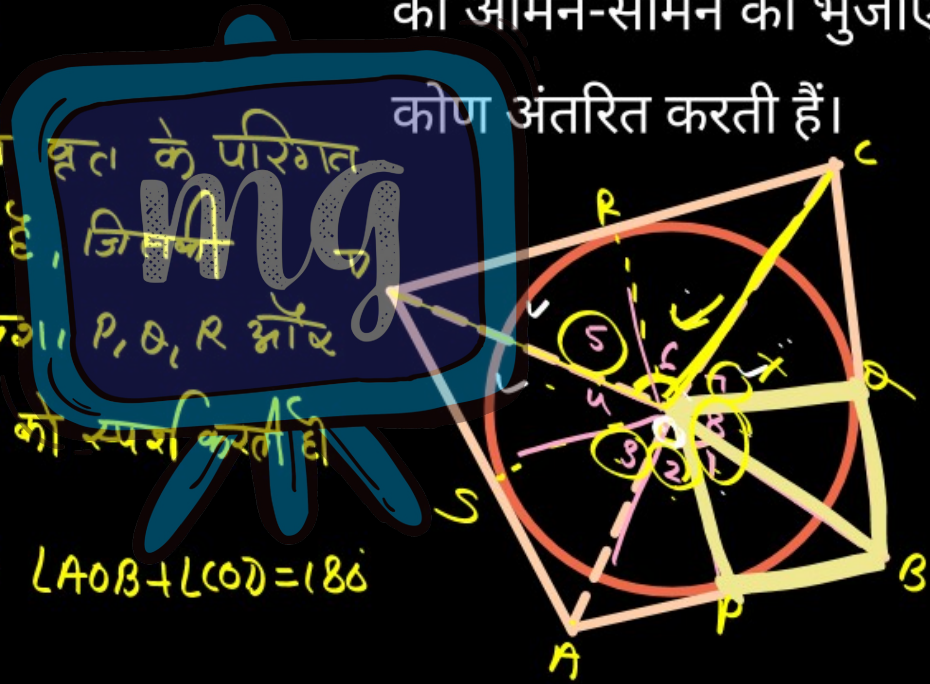 की आमने-सामने की भुजाएँ
कोण अंतरित करती हैं।
वृत्त के परिगत
है, जिसकी
P, Q, R और
को स्पर्श करती हो
∠AOB+∠COD=180°
mg
C
R
Q
5
6
7
4
8
3
2
1
S
B
P
A